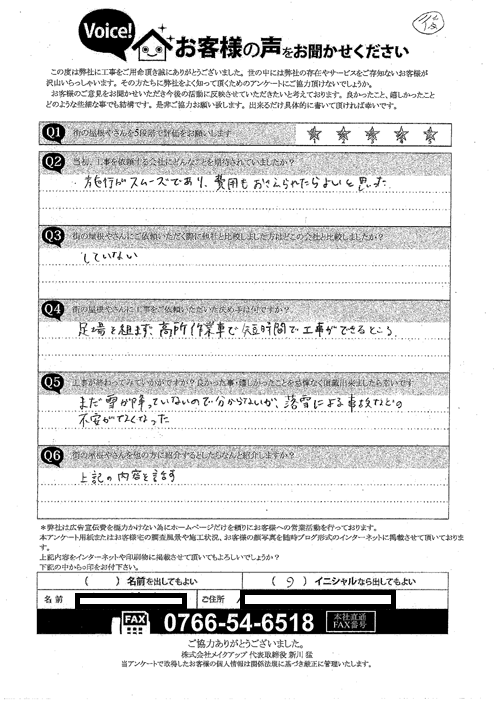 Voice!
お客様の声をお聞かせください
この度は弊社に工事をご用命頂き誠にありがとうございました。世の中には弊社の存在やサービスをご存知ないお客様が
沢山いらっしゃいます。その方たちに弊社をよく知って頂くためのアンケートにご協力頂けないでしょうか。
お客様のご意見をお聞かせいただき今後の活動に反映させていただきたいと考えております。良かったこと、嬉しかったこと
どのような些細な事でも結構です。是非ご協力お願い致します。出来るだけ具体的に書いて頂ければ幸いです。
Q1 街の屋根やさんを5段階で評価をお願いします
Q2 当初、工事を依頼する会社にどんなことを期待されていましたか?
施行がスムーズであり、費用もおさえられたらよいと思った
Q3 街の屋根やさんにご依頼いただく際に他社と比較しました方はどこの会社と比較しましたか?
していない
Q4 街の屋根やさんに工事をご依頼いただいた決め手は何ですか?
足場を組まず、高所作業車で短時間で工事ができるところ
Q5 工事が終わってみていかがですか?良かった事・嬉しかったことを忌憚なく頂戴出来ましたら幸いです
まだ雪が降っていないので分からないが、落雪による事故などの
不安がなくなった
Q6 街の屋根やさんを他の方に紹介するとしたらなんと紹介しますか?
上記の内容を話す
＊弊社は広告宣伝費を極力かけない為にホームページだけを頼りにお客様への営業活動を行っております。
本アンケート用紙またはお客様宅の調査風景や施工状況、お客様の顔写真を随時ブログ形式のインターネットに掲載させて頂いております。
上記内容をインターネットや印刷物に掲載させて頂いてもよろしいでしょうか?
下記の中から○印をお付下さい。
( )名前を出してもよい ( )イニシャルなら出してもよい
名 前 ご住所
FAX 0766-54-6518 本社直通 FAX番号
ご協力ありがとうございました。
株式会社メイクアップ 代表取締役 新川 猛
当アンケートで取得したお客様の個人情報は関係法規に基づき厳正に管理いたします。